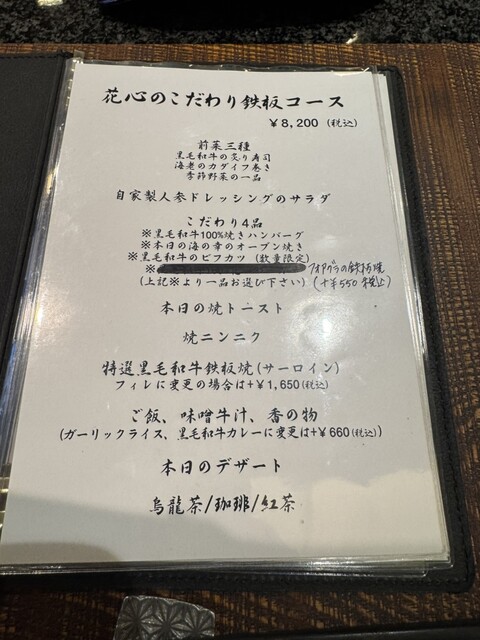 花心のこだわり鉄板コース
￥8,200 (税込)
前菜三種
黒毛和牛の炙り寿司
海老のカダイフ巻き
季節野菜の一品
自家製人参ドレッシングのサラダ
こだわり4品
※黒毛和牛100%焼きハンバーグ
※本日の海の幸のオーブン焼き
※黒毛和牛のビフカツ (数量限定)
※ フォアグラの鉄板焼
(上記※より一品お選び下さい) (+￥550 税込)
本日の焼トースト
焼ニンニク
特選黒毛和牛鉄板焼(サーロイン)
フィレに変更の場合は+￥1,650(税込)
ご飯、味噌牛汁、香の物
(ガーリックライス、黒毛和牛カレーに変更は+￥660(税込))
本日のデザート
烏龍茶/珈琲/紅茶